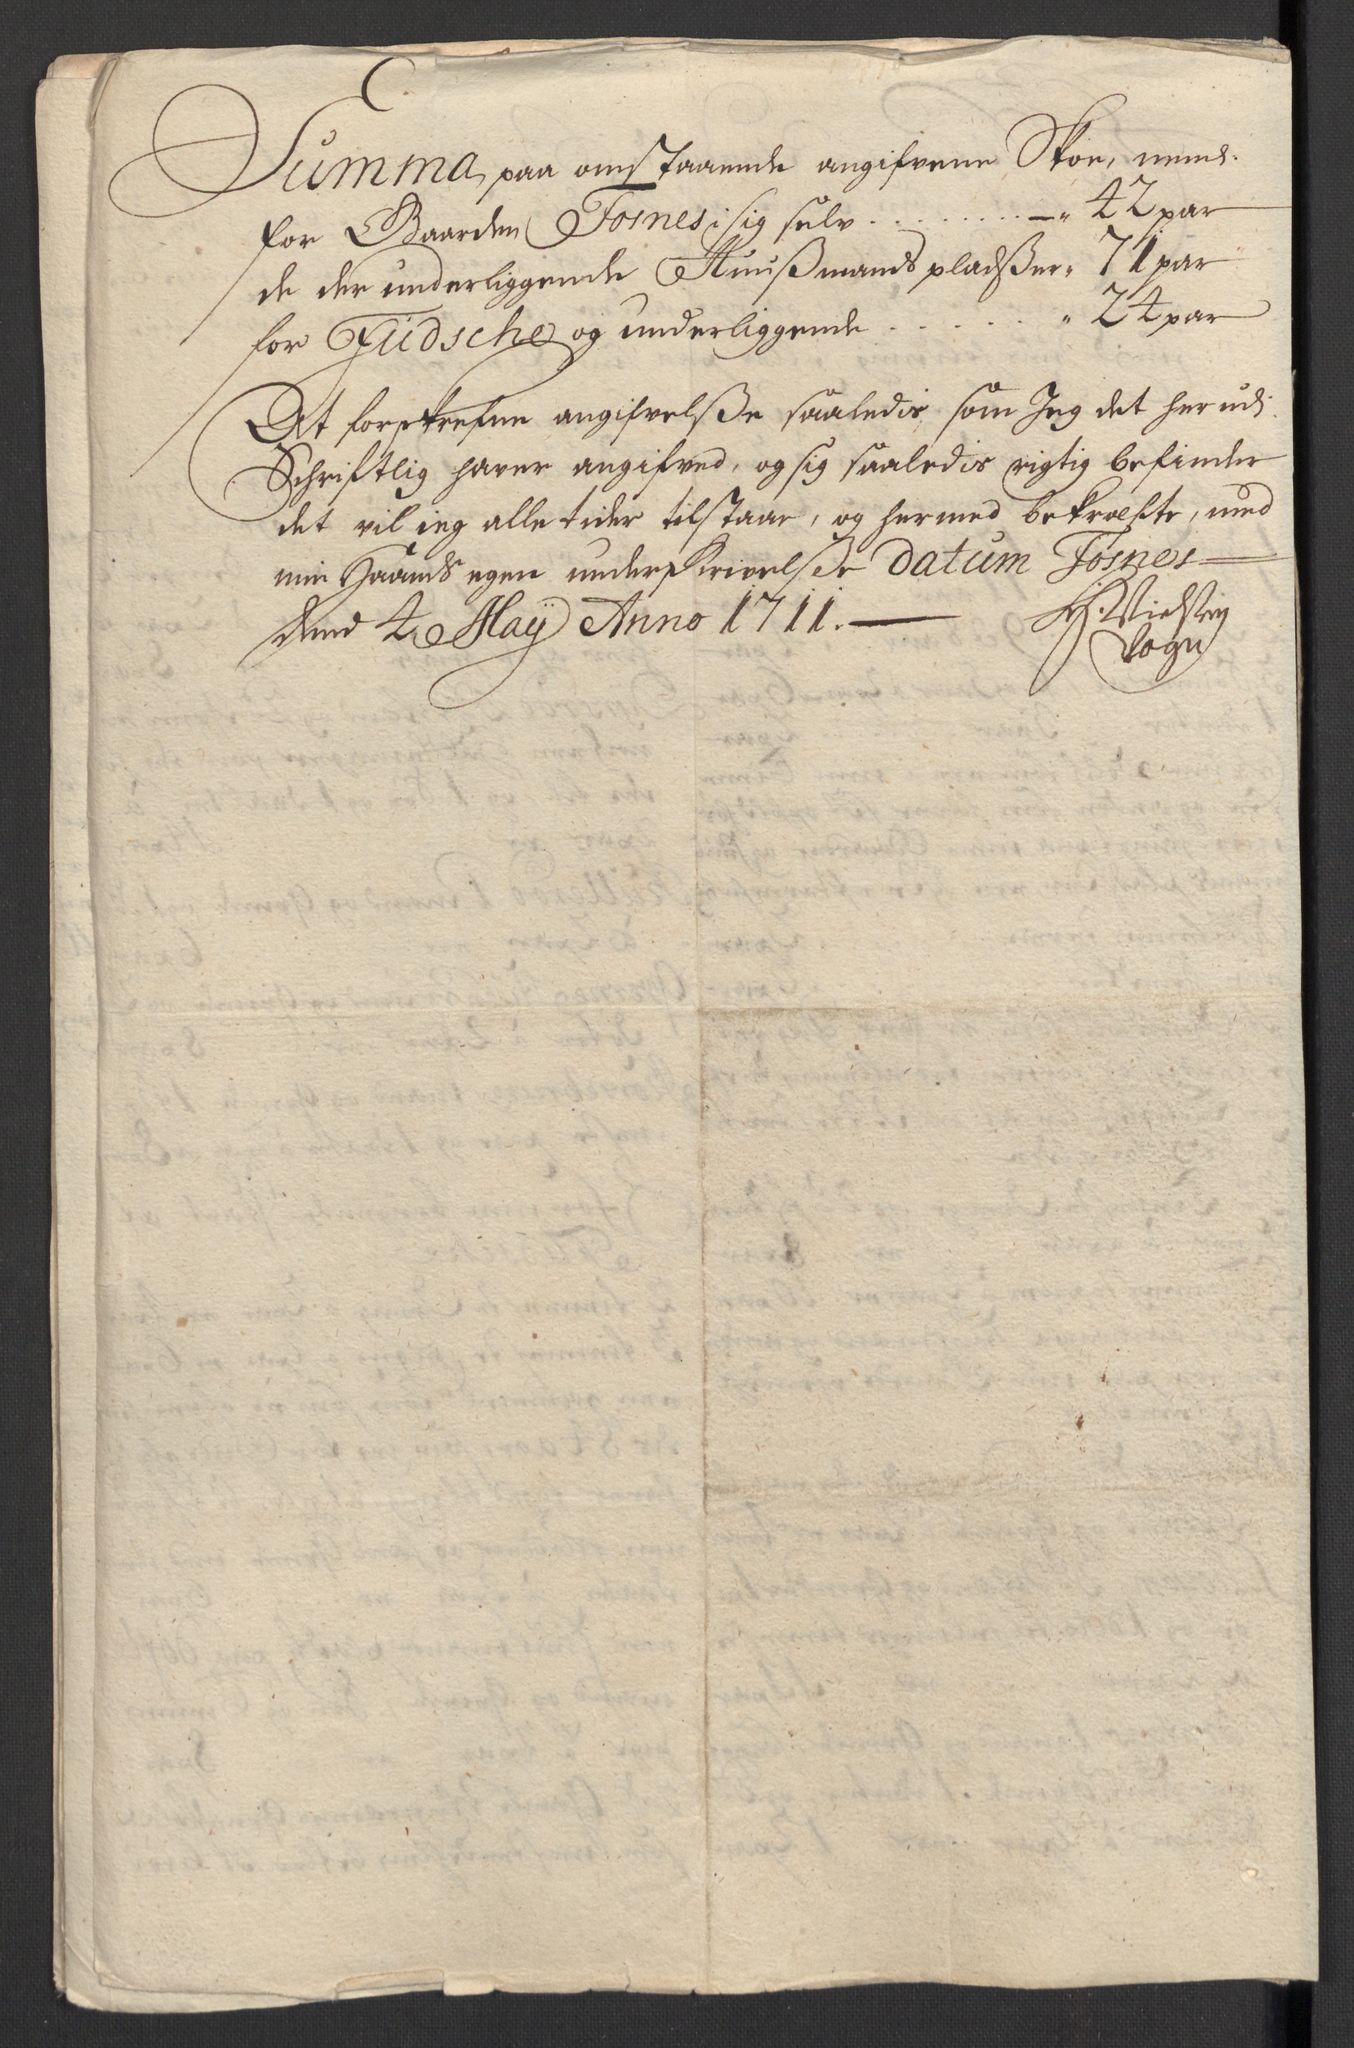 Summa paa omstaaende angifvene Skoe, neml.
for Gaarden Fosnes i sig selv . . . . . . . . — „ 42 par
de der underliggende Huußmands pladsser „ 71 par
for Jüdsche og underliggende . . . . . . „ 24 par
At forskrefne angifvelsse saaledis som Jeg det her udi
Schriftlig haver angifved, og sig saaledis rigtig befinder
det vil ieg alle tider tilstaae, og hermed bekræfte, med
min Haands egen underskrivelsse Datum Fosnes
dend 4 Maÿ Anno 1711. —